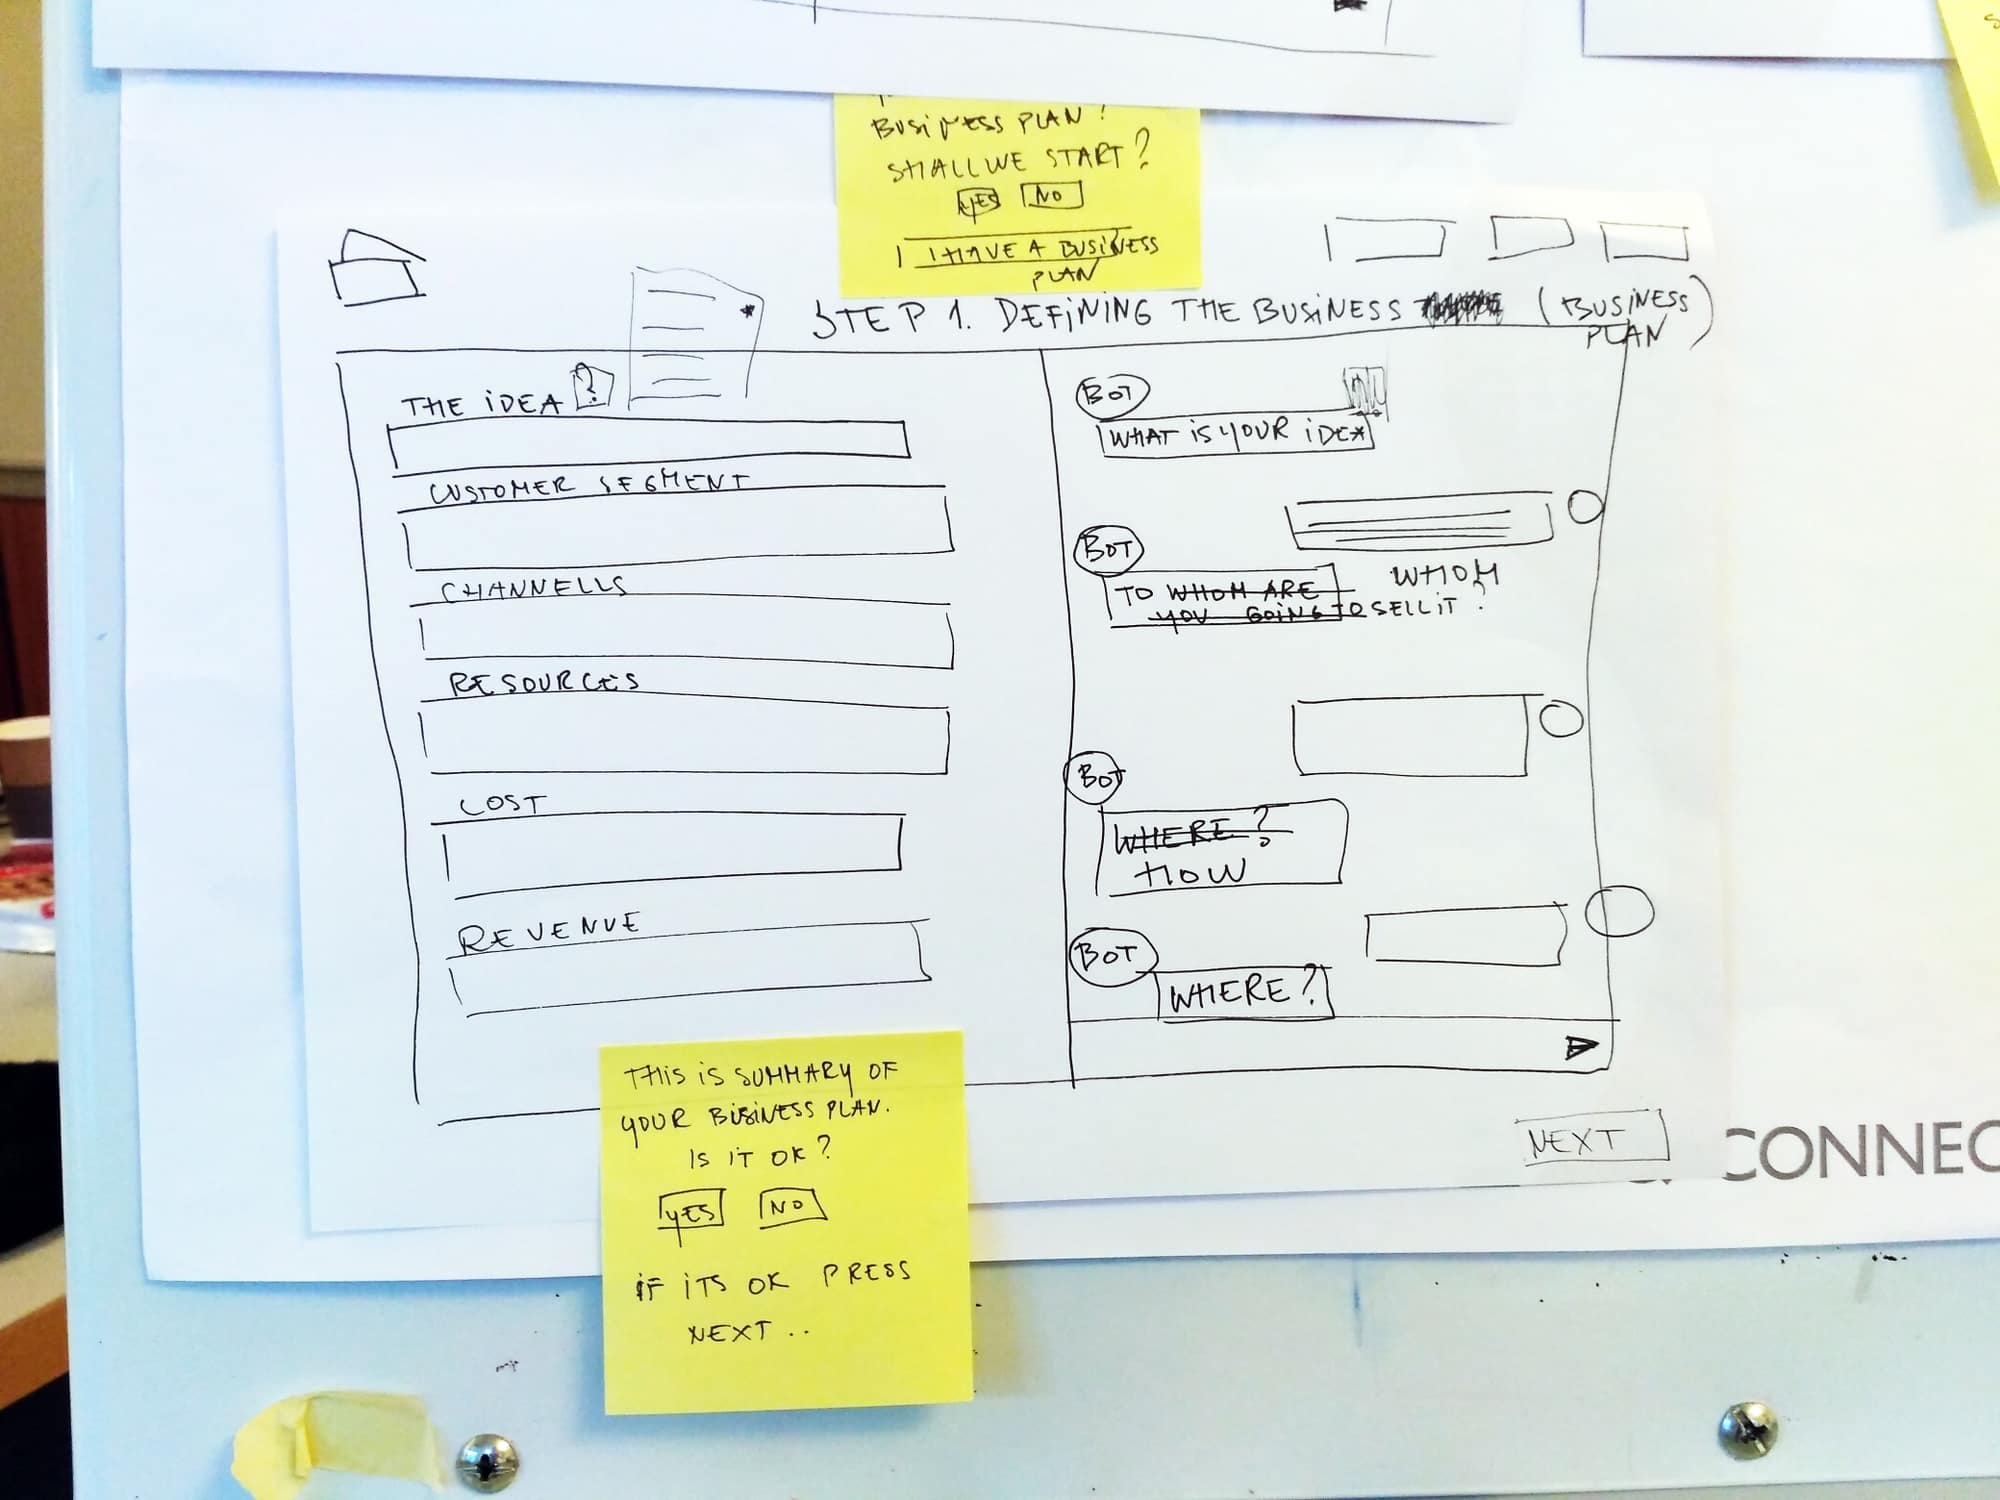 BUSINESS PLAN?
SHALL WE START?
YES NO
I HAVE A BUSINESS
PLAN
STEP 1. DEFINING THE BUSINESS (BUSINESS
PLAN)
THE IDEA ?
CUSTOMER SEGMENT
CHANNELLS
RESOURCES
COST
REVENUE
BOT
WHAT IS YOUR IDEA
BOT
TO WHOM ARE
YOU GOING TO SELL IT?
WHOM
BOT
WHERE?
HOW
BOT
WHERE?
NEXT
THIS IS SUMMARY OF
YOUR BUSINESS PLAN.
IS IT OK?
YES NO
IF ITS OK PRESS
NEXT..
CONNEC